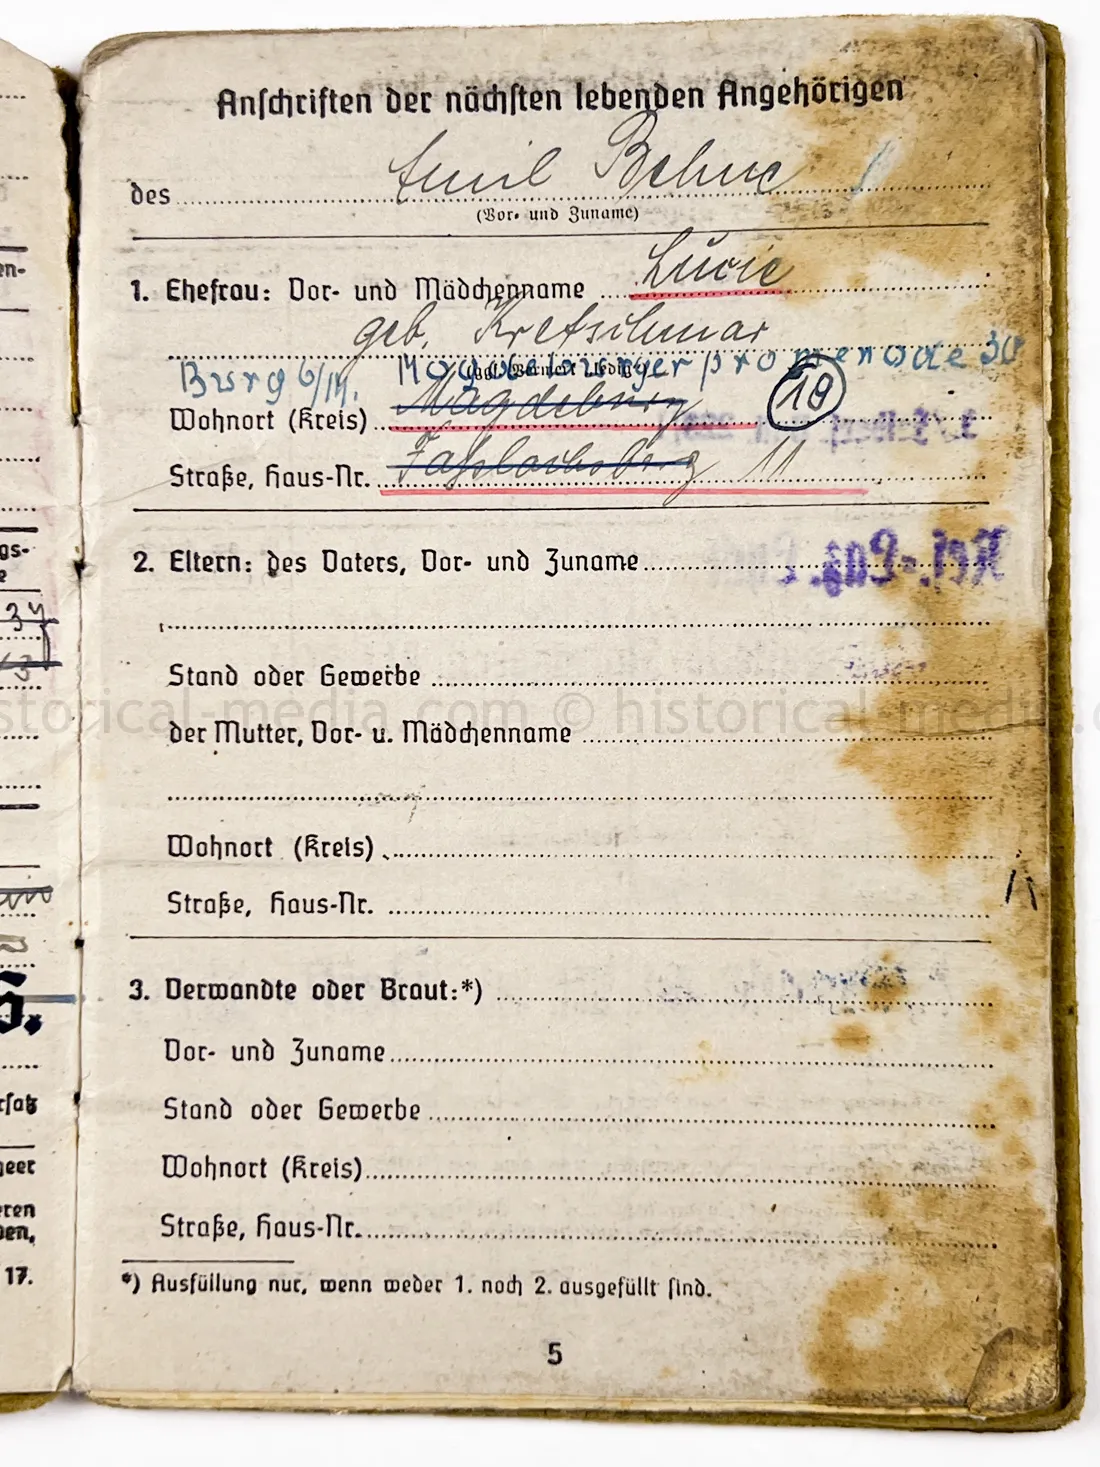 Anschriften der nächsten lebenden Angehörigen
des Emil Behne
(Vor- und Zuname)
1. Ehefrau: Vor- und Mädchenname Lucie
geb. Kretschmar
Burg b/M. Magdeburgerpromenade 30
Wohnort (Kreis) Magdeburg 19
Straße, Haus-Nr. 11
2. Eltern: des Vaters, Vor- und Zuname
Stand oder Gewerbe
historical-media.com © historical-media.com
der Mutter, Vor- u. Mädchenname
Wohnort (Kreis)
Straße, Haus-Nr.
3. Verwandte oder Braut:*)
Vor- und Zuname
Stand oder Gewerbe
Wohnort (Kreis)
Straße, Haus-Nr.
*) Ausfüllung nur, wenn weder 1. noch 2. ausgefüllt sind.
5
en-
gs-
e
34
rsatz
heer
eren
den,
17.